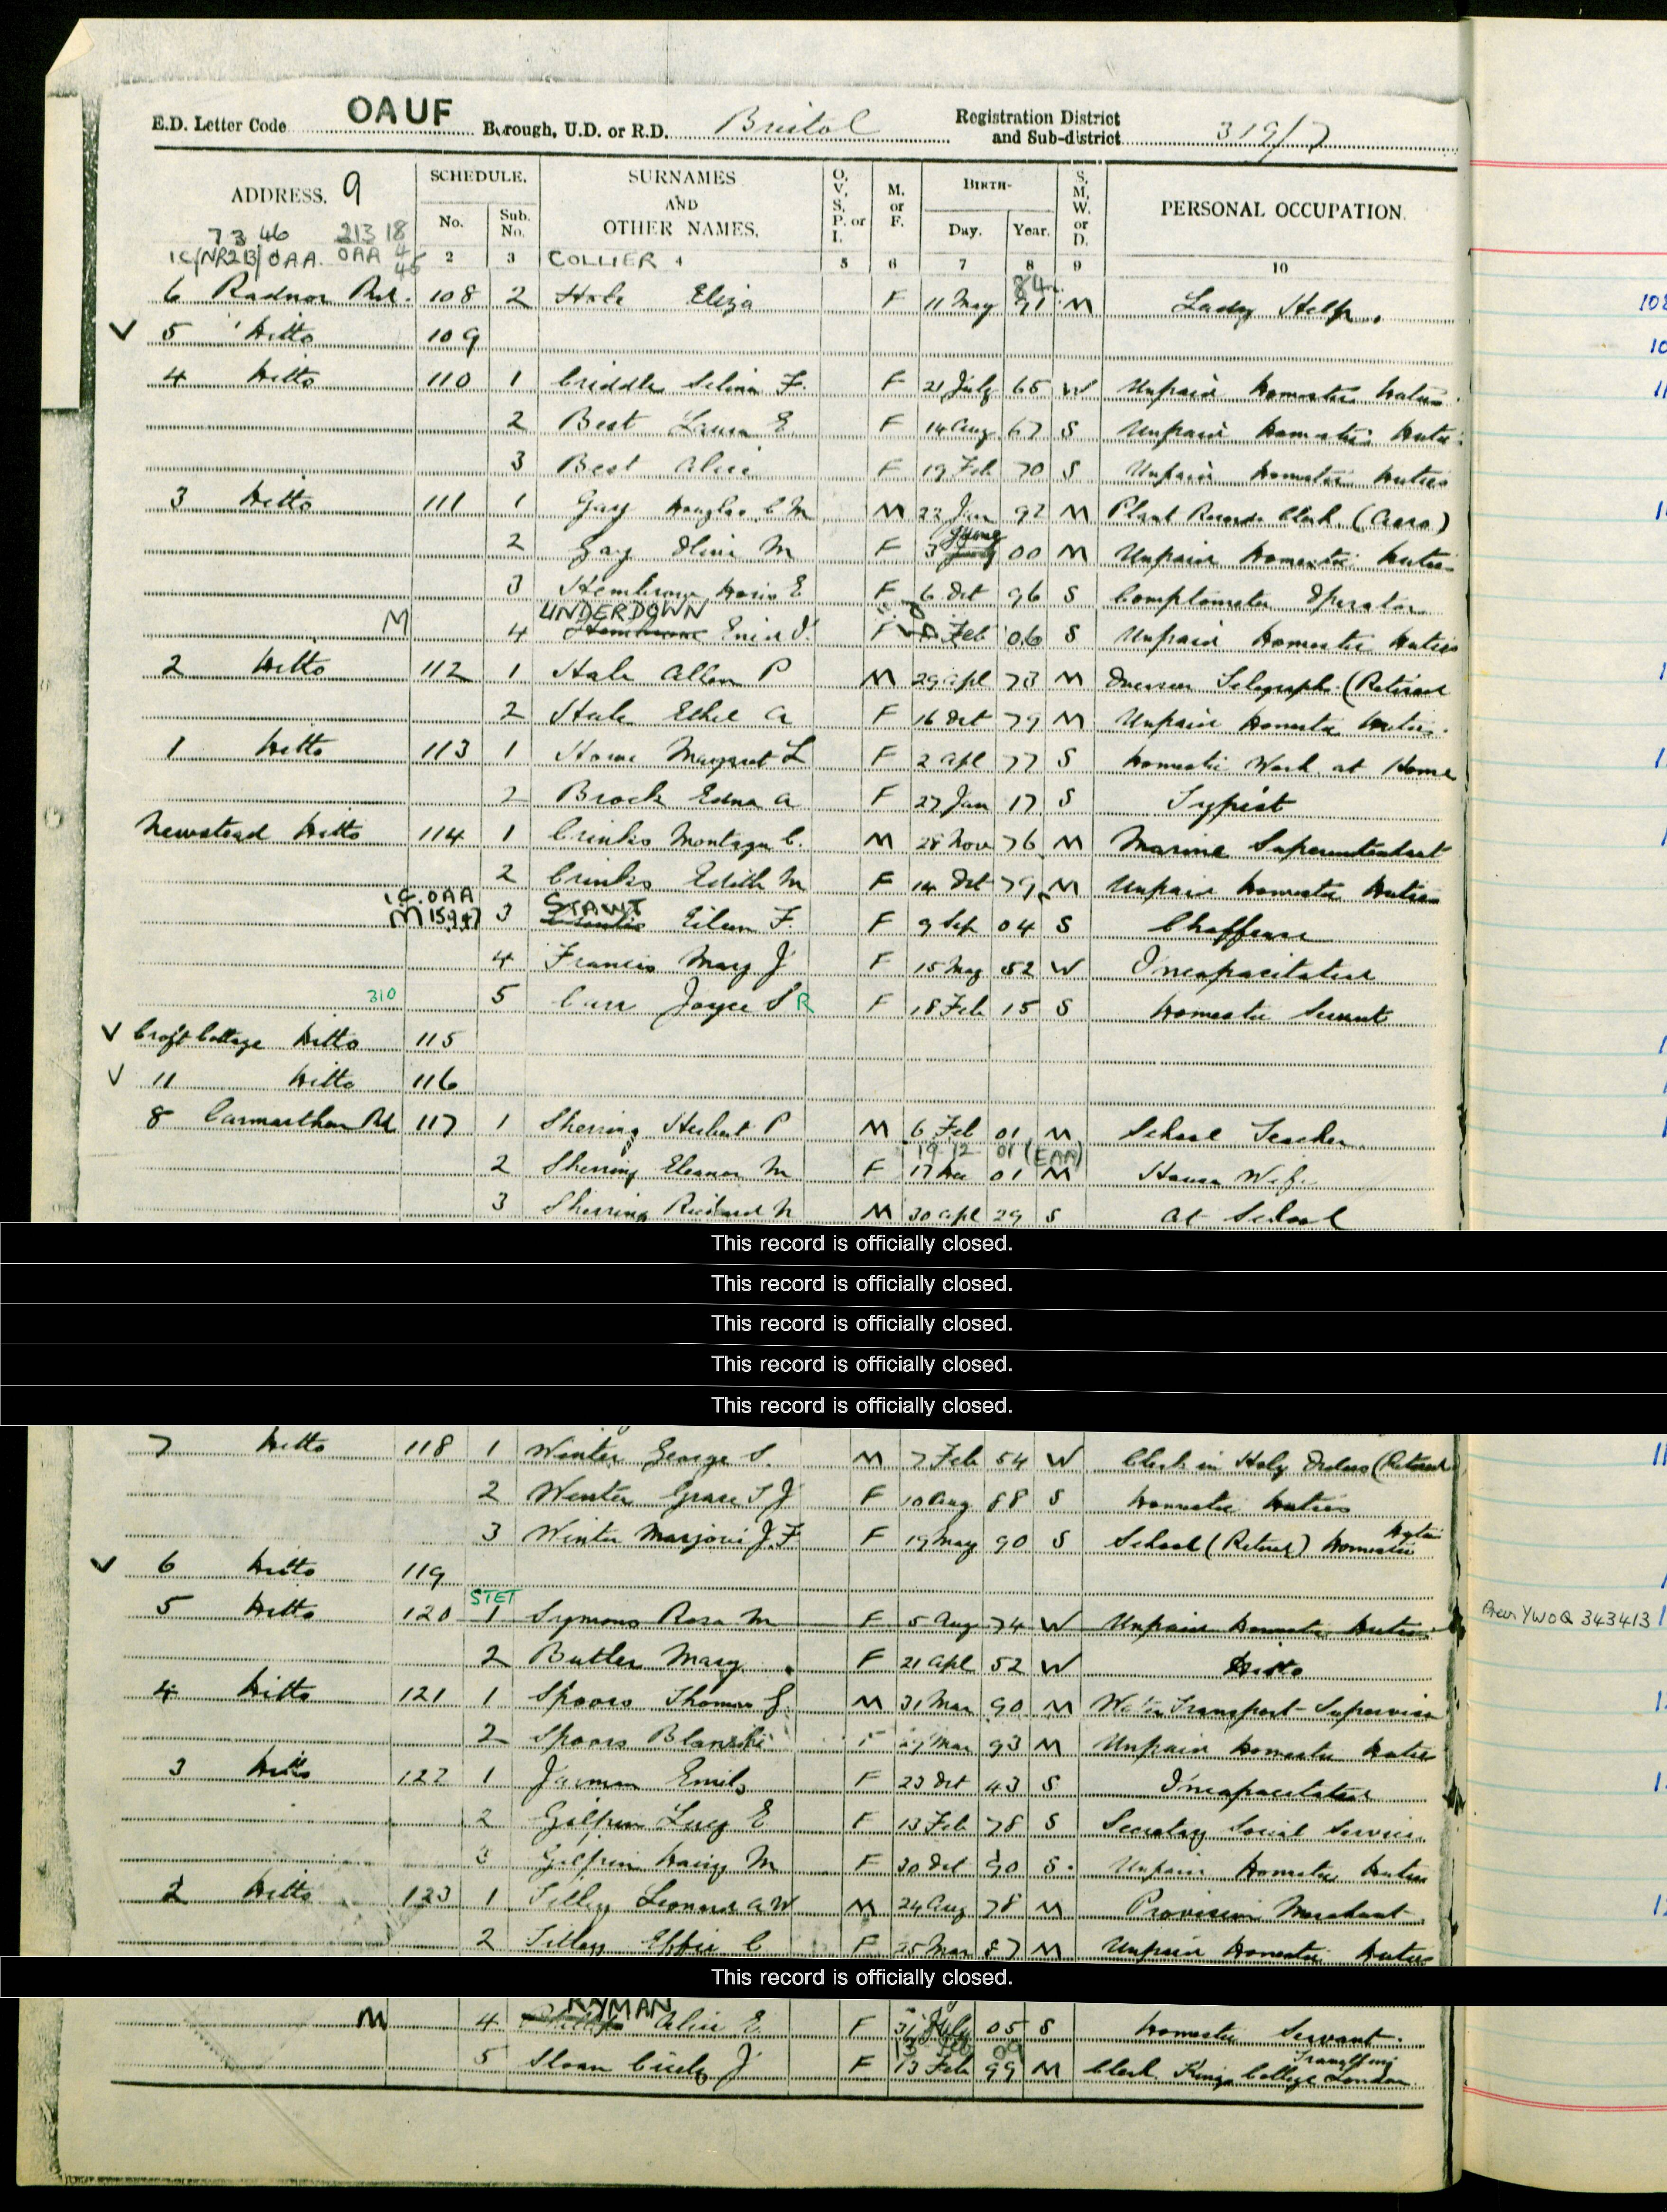 E.D. Letter Code OAUF Borough, U.D. or R.D. Bristol Registration District and Sub-district 319/7
ADDRESS. 9 SCHEDULE. No. Sub. No. SURNAMES AND OTHER NAMES. O, V, S, P. or I. M. or F. BIRTH- Day. Year. S, M, W. or D. PERSONAL OCCUPATION.
7 3 46 213 18
1C/NR2B/OAA OAA 4 45 2 3 COLLIER 5 6 7 8 9 10
84
6 Radnor Rd. 108 2 Hole Eliza F 11 May 91 M Lady Help.
5 Ditto 109
4 Ditto 110 1 Criddle Selina F. F 21 July 65 W Unpaid Domestic Duties
2 Best Laura E. F 14 Aug 67 S Unpaid Domestic Duties
3 Best Alice F 19 Feb 70 S Unpaid Domestic Duties
3 Ditto 111 1 Gay Douglas C M M 22 Jan 92 M Plant Records Clerk (Aero)
June
2 Gay Olive M F 3 00 M Unpaid Domestic Duties
3 Hembrow Doris E F 6 Oct 96 S Comptometer Operator
UNDERDOWN 8
M 4 Hembrow Enid J. F Feb 06 S Unpaid Domestic Duties
2 Ditto 112 1 Hale Allan P M 29 Apl 73 M Overseer Telegraphs (Retired
2 Hale Ethel A F 16 Oct 79 M Unpaid Domestic Duties
1 Ditto 113 1 Howe Margaret L F 2 Apl 77 S Domestic Work at Home
2 Brock Edna A F 27 Jan 17 S Typist
Newstead Ditto 114 1 Crinks Montagu C. M 28 Nov 76 M Marine Superintendent
2 Crinks Edith M F 14 Oct 79 M Unpaid Domestic Duties
1C. OAA
M 15947 3 Eileen F. F 9 Sep 04 S Chaffeuse
4 Francis Mary J F 15 May 52 W Incapacitated
310 5 Carr Joyce S R F 18 Feb 15 S Domestic Servant
Croft Cottage Ditto 115
11 Ditto 116
8 Carmarthen Rd. 117 1 Sherring Herbert P M 6 Feb 01 M School Teacher
19 12 01 (EAA)
2 Sherring Eleanor M F 17 Dec 01 M House Wife
3 Sherring Richard N M 30 Apl 29 S At School
This record is officially closed.
This record is officially closed.
This record is officially closed.
This record is officially closed.
This record is officially closed.
7 Ditto 118 1 Winter George S. M 7 Feb 54 W Clerk in Holy Orders (Retired
2 Winter Grace S J F 10 Aug 88 S Domestic Duties
3 Winter Marjorie J. F F 19 May 90 S School (Retired) Domestic Duties
6 Ditto 119
STET
5 Ditto 120 1 Symons Rosa M F 5 Aug 74 W Unpaid Domestic Duties
YWOQ 343413
2 Butler Mary F 21 Apl 52 W Ditto
4 Ditto 121 1 Spoors Thomas G. M 31 Mar 90 M Transport Supervisor
2 Spoors Blanche F 29 Mar 93 M Unpaid Domestic Duties
3 Ditto 122 1 Jarman Emily F 23 Oct 43 S Incapacitated
2 Gilpin Lucy E F 13 Feb 78 S Secretary Social Service
3 Gilpin Daisy M F 30 Oct 90 S. Unpaid Domestic Duties
2 Ditto 123 1 Tilley Leonard A W M 24 Aug 78 M Provision Merchant
2 Tilley Effie C F 25 Mar 87 M Unpaid Domestic Duties
This record is officially closed.
RAYMAN
M 4 Alice E F 31 July 05 S Domestic Servant.
5 Sloan Cicely J F 13 Feb 99 M Clerk Kings College London